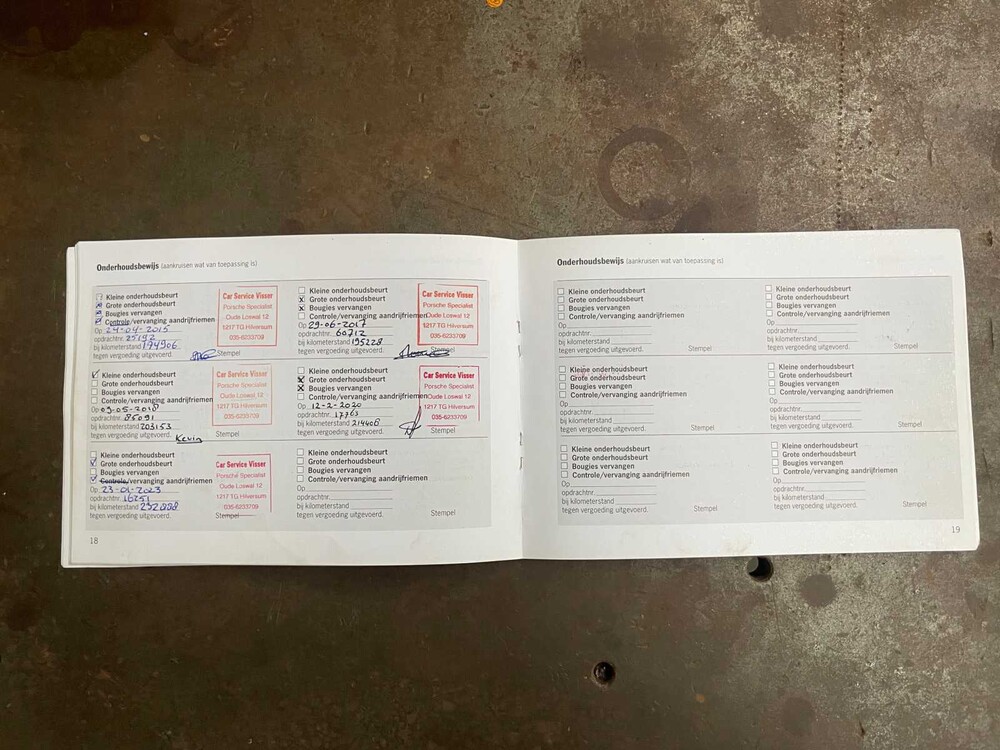 Onderhoudsbewijs (aankruisen wat van toepassing is)
Kleine onderhoudsbeurt
Grote onderhoudsbeurt
Bougies vervangen
Controle/vervanging aandrijfriemen
Op 24-04-2015
opdrachtnr. 25192
bij kilometerstand 174906
tegen vergoeding uitgevoerd.
Stempel
Car Service Visser
Porsche Specialist
Oude Loswal 12
1217 TG Hilversum
035-6233709
Kleine onderhoudsbeurt
Grote onderhoudsbeurt
Bougies vervangen
Controle/vervanging aandrijfriemen
Op 29-06-2017
opdrachtnr. 60712
bij kilometerstand 195228
tegen vergoeding uitgevoerd.
Stempel
Car Service Visser
Porsche Specialist
Oude Loswal 12
1217 TG Hilversum
035-6233709
Kleine onderhoudsbeurt
Grote onderhoudsbeurt
Bougies vervangen
Controle/vervanging aandrijfriemen
Op 09-05-2018
opdrachtnr. 85091
bij kilometerstand 203153
tegen vergoeding uitgevoerd. Kevin
Stempel
Car Service Visser
Porsche Specialist
Oude Loswal 12
1217 TG Hilversum
035-6233709
Kleine onderhoudsbeurt
Grote onderhoudsbeurt
Bougies vervangen
Controle/vervanging aandrijfriemen
Op 12-2-2020
opdrachtnr. 17763
bij kilometerstand 214406
tegen vergoeding uitgevoerd.
Stempel
Car Service Visser
Porsche Specialist
Oude Loswal 12
1217 TG Hilversum
035-6233709
Kleine onderhoudsbeurt
Grote onderhoudsbeurt
Bougies vervangen
Controle/vervanging aandrijfriemen
Op 23-01-2023
opdrachtnr. 16251
bij kilometerstand
tegen vergoeding uitgevoerd.
Stempel
Car Service Visser
Porsche Specialist
Oude Loswal 12
1217 TG Hilversum
035-6233709
Kleine onderhoudsbeurt
Grote onderhoudsbeurt
Bougies vervangen
Controle/vervanging aandrijfriemen
Op
opdrachtnr.
bij kilometerstand
tegen vergoeding uitgevoerd.
Stempel
18
Onderhoudsbewijs (aankruisen wat van toepassing is)
Kleine onderhoudsbeurt
Grote onderhoudsbeurt
Bougies vervangen
Controle/vervanging aandrijfriemen
Op
opdrachtnr.
bij kilometerstand
tegen vergoeding uitgevoerd.
Stempel
Kleine onderhoudsbeurt
Grote onderhoudsbeurt
Bougies vervangen
Controle/vervanging aandrijfriemen
Op
opdrachtnr.
bij kilometerstand
tegen vergoeding uitgevoerd.
Stempel
Kleine onderhoudsbeurt
Grote onderhoudsbeurt
Bougies vervangen
Controle/vervanging aandrijfriemen
Op
opdrachtnr.
bij kilometerstand
tegen vergoeding uitgevoerd.
Stempel
Kleine onderhoudsbeurt
Grote onderhoudsbeurt
Bougies vervangen
Controle/vervanging aandrijfriemen
Op
opdrachtnr.
bij kilometerstand
tegen vergoeding uitgevoerd.
Stempel
Kleine onderhoudsbeurt
Grote onderhoudsbeurt
Bougies vervangen
Controle/vervanging aandrijfriemen
Op
opdrachtnr.
bij kilometerstand
tegen vergoeding uitgevoerd.
Stempel
Kleine onderhoudsbeurt
Grote onderhoudsbeurt
Bougies vervangen
Controle/vervanging aandrijfriemen
Op
opdrachtnr.
bij kilometerstand
tegen vergoeding uitgevoerd.
Stempel
19